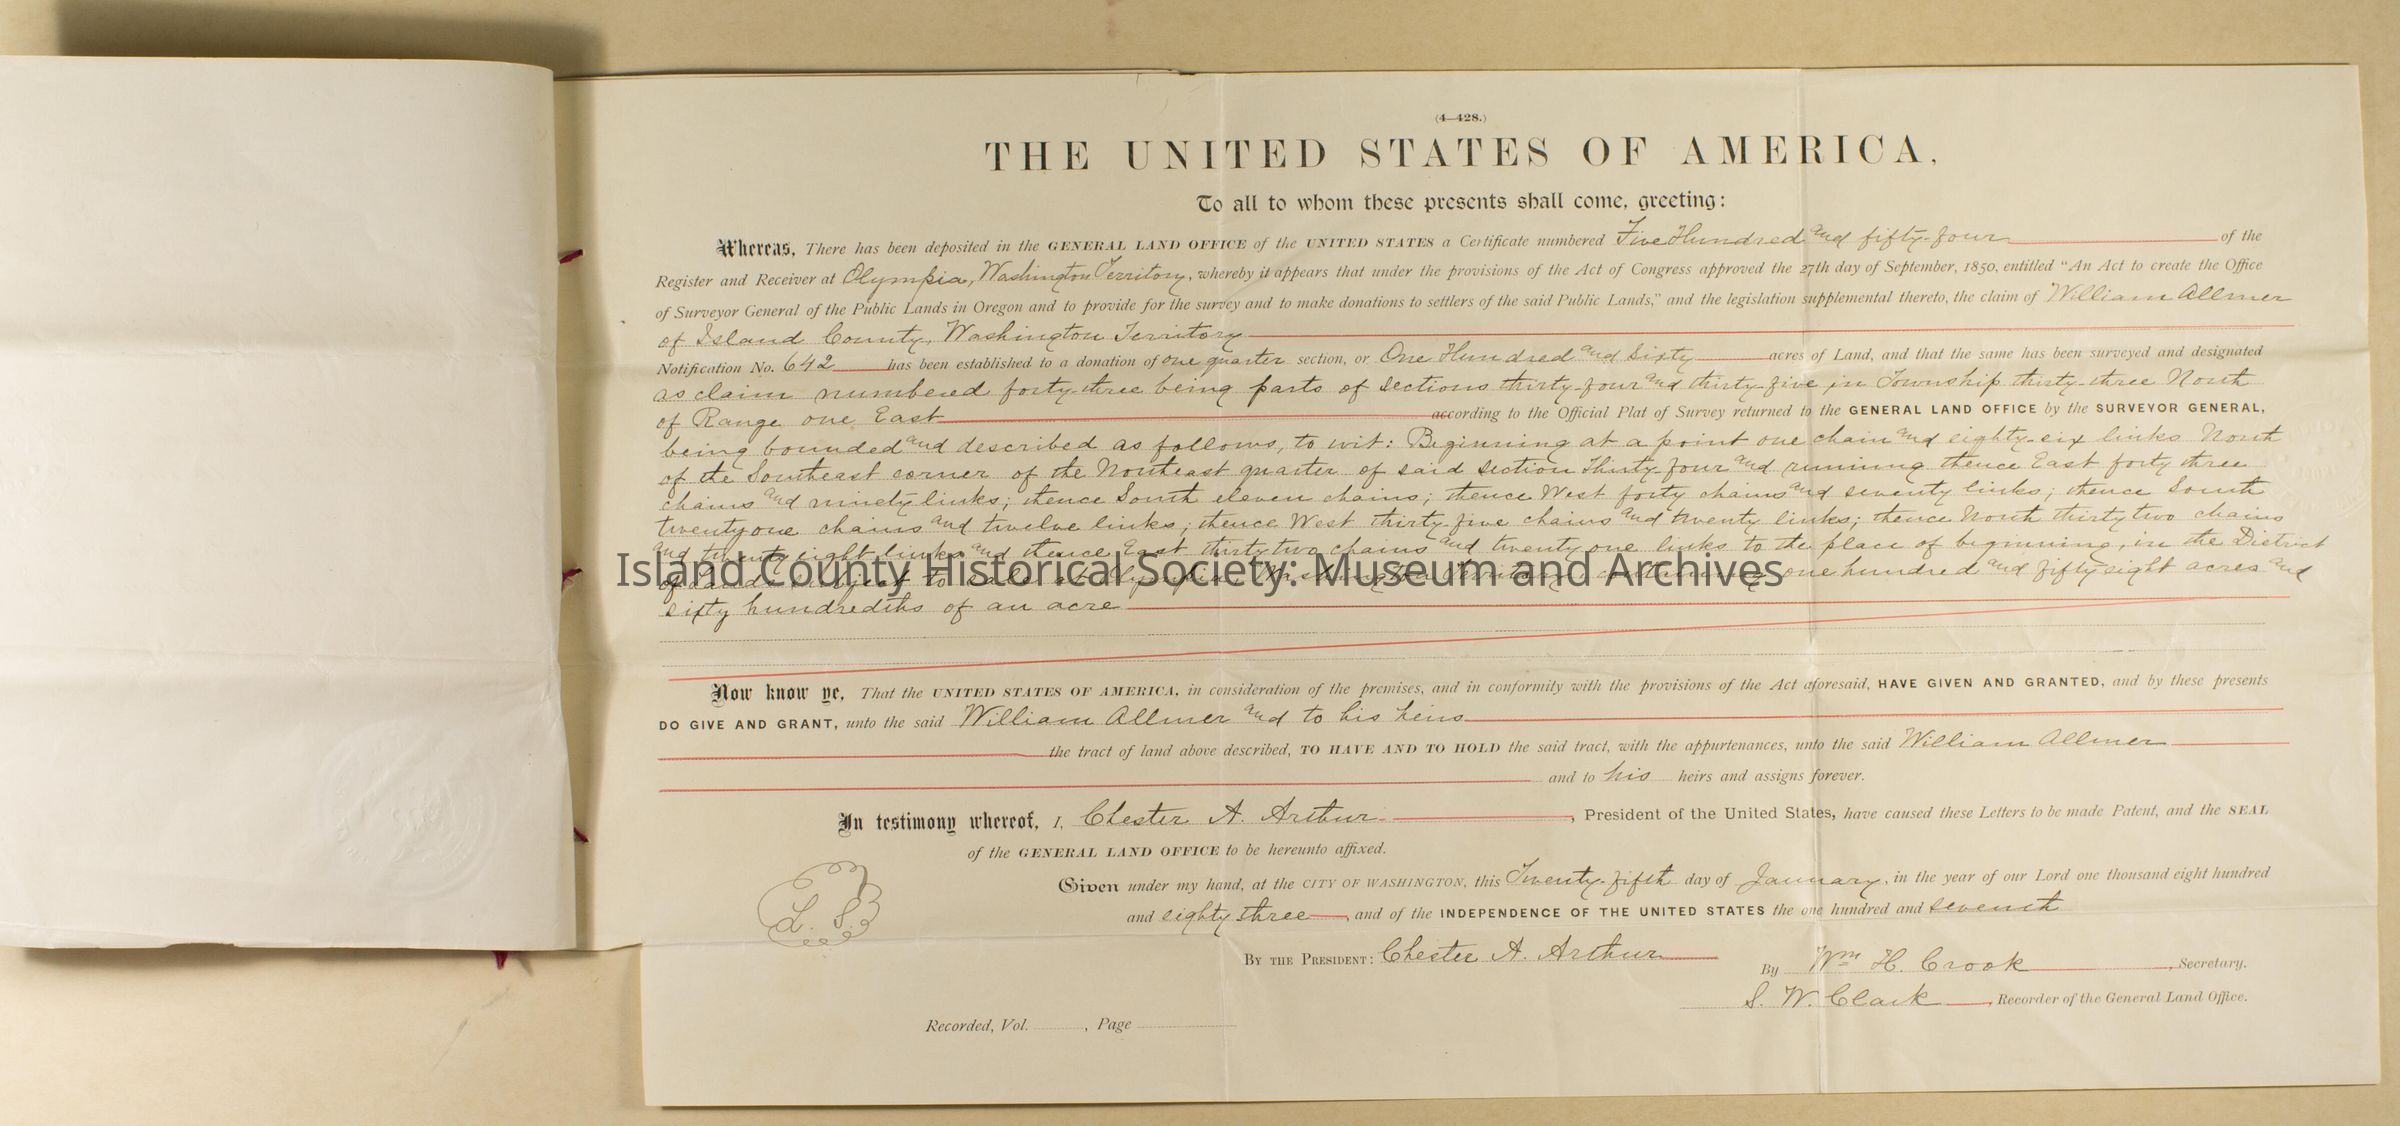 (4—428.)
THE UNITED STATES OF AMERICA,
To all to whom these presents shall come, greeting:
Whereas, There has been deposited in the GENERAL LAND OFFICE of the UNITED STATES a Certificate numbered Five Hundred and fifty-four of the
Register and Receiver at Olympia, Washington Territory, whereby it appears that under the provisions of the Act of Congress approved the 27th day of September, 1850, entitled “An Act to create the Office
of Surveyor General of the Public Lands in Oregon and to provide for the survey and to make donations to settlers of the said Public Lands,” and the legislation supplemental thereto, the claim of William Allmer
of Island County, Washington Territory
Notification No. 642 has been established to a donation of one quarter section, or One Hundred and Sixty acres of Land, and that the same has been surveyed and designated
as claim numbered forty-three being parts of Sections thirty-four and thirty-five in Township thirty-three North
of Range one East according to the Official Plat of Survey returned to the GENERAL LAND OFFICE by the SURVEYOR GENERAL,
being bounded and described as follows, to wit: Beginning at a point one chain and eighty-six links North
of the Southeast corner of the Northeast quarter of said Section Thirty-four and running thence East forty three
chains and ninety links; thence South eleven chains; thence West forty chains and seventy links; thence South
twenty one chains and twelve links; thence West thirty-five chains and twenty links; thence North thirty two chains
and twenty eight links and thence East thirty two chains and twenty one links to the place of beginning, in the District
of Lands subject to sale at Olympia Washington Territory containing one hundred and fifty eight acres and
sixty hundredths of an acre
Island County Historical Society: Museum and Archives
Now know ye, That the UNITED STATES OF AMERICA, in consideration of the premises, and in conformity with the provisions of the Act aforesaid, HAVE GIVEN AND GRANTED, and by these presents
DO GIVE AND GRANT, unto the said William Allmer and to his heirs
the tract of land above described, TO HAVE AND TO HOLD the said tract, with the appurtenances, unto the said William Allmer
and to his heirs and assigns forever.
In testimony whereof, I, Chester A. Arthur, President of the United States, have caused these Letters to be made Patent, and the SEAL
of the GENERAL LAND OFFICE to be hereunto affixed.
L. S.
Given under my hand, at the CITY OF WASHINGTON, this Twenty-fifth day of January, in the year of our Lord one thousand eight hundred
and eighty three, and of the INDEPENDENCE OF THE UNITED STATES the one hundred and seventh
BY THE PRESIDENT: Chester A. Arthur
By Wm H. Crook, Secretary.
S. W. Clark, Recorder of the General Land Office.
Recorded, Vol. , Page